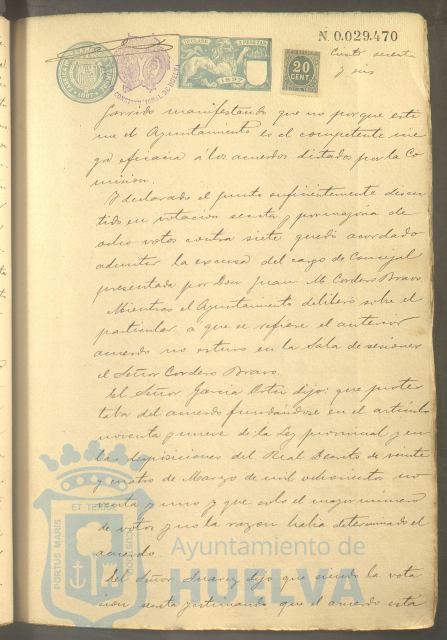 N. 0.029.470
Ciento sesenta
y seis
10ª CLASE 2 PESETAS
1897
20
CENT.
CONSTITUCIONAL DE HUELVA
Garrido manifestando que no porque este
me el Ayuntamiento es el competente nie
ga eficacia á los acuerdos dictados por la Co
mision.
Y declarado el punto suficientemente discu
tido en votacion secreta y por mayoria de
ocho votos contra siete quedó acordado
admitir la excusa del cargo de Concejal
presentada por Don Juan M. Cordero Bravo
Mientras el Ayuntamiento deliberó sobre el
particular a que se refiere el anterior
acuerdo no estuvo en la Sala de sesiones
el Señor Cordero Bravo.
El Señor Garcia Ortiz dijo: que protes
taba del acuerdo fundándose en el artículo
noventa y nueve de la Ley provincial y en
las disposiciones del Real Decreto de veinte
y cuatro de Marzo de mil ochocientos no
venta y uno y que solo el mayor número
de votos y no la razon habia determinado el
acuerdo.
El Señor Suarez dijo que siendo la vota
cion secreta y estimando que el acuerdo está
PORTUS MARIS ET TERRAE CUSTODIA
Ayuntamiento de
HUELVA